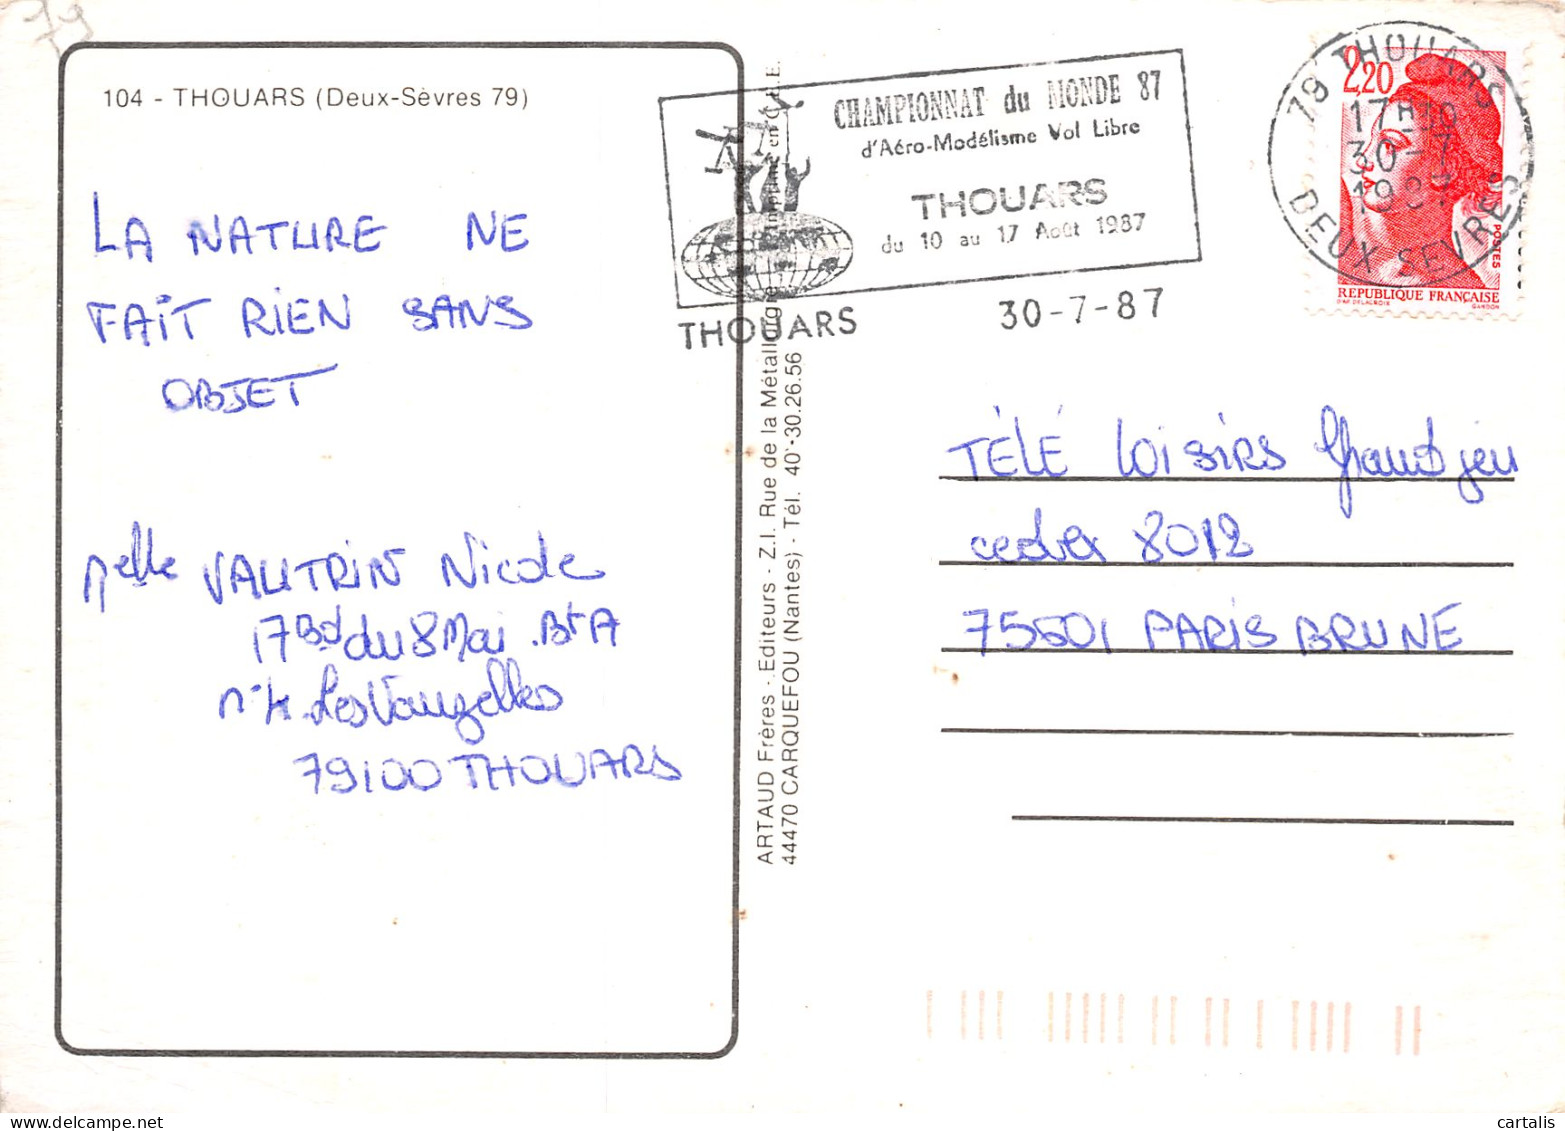 79
104 - THOUARS (Deux-Sèvres 79)
LA NATURE NE
FAIT RIEN SANS
OBJET
Melle VAUTRIN Nicole
17 Bd du 8 Mai Bt A
Les Vauzelles
79100 THOUARS
ARTAUD Frères - Editeurs - Z.I. Rue de la Métallurgie
44470 CARQUEFOU (Nantes) - Tél. 40.30.26.56
CHAMPIONNAT du MONDE 87
d'Aéro-Modélisme Vol Libre
THOUARS
du 10 au 17 Août 1987
THOUARS
30-7-87
79 THOUARS
17H10
30-7
1987
DEUX SEVRES
2,20
POSTES
REPUBLIQUE FRANÇAISE
TÉLÉ LOISIRS Grand jeu
cedex 8012
75601 PARIS BRUNE
cartalis
www.delcampe.net